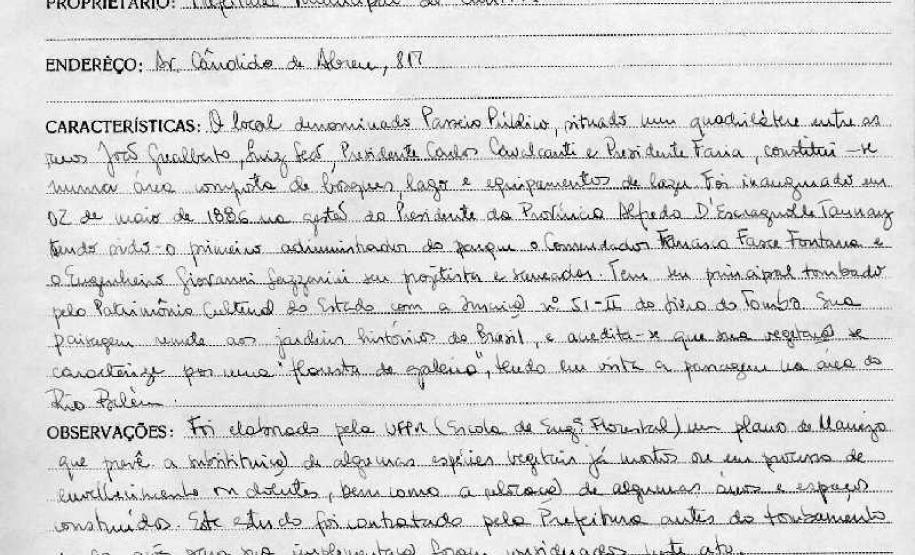 PROPRIETÁRIO: Prefeitura Municipal de
ENDERÊÇO: Av. Cândido de Abreu, 817
CARACTERÍSTICAS: O local denominado Passeio Público, situado num quadrilátero entre as
ruas João Gualberto, Luiz Leão, Presidente Carlos Cavalcanti e Presidente Faria, constitui-se
numa área composta de bosques, lago e equipamentos de lazer. Foi inaugurado em
02 de maio de 1886 na gestão do Presidente da Província Alfredo D'Escragnolle Taunay
tendo sido o primeiro administrador do parque o Comendador Francisco Fasce Fontana e
o Engenheiro Giovanni Lazzarini seu projetista e saneador. Tem seu principal tombado
pelo Patrimônio Cultural do Estado com a Inscrição nº 51-II do Livro do Tombo. Sua
paisagem remete aos jardins históricos do Brasil, e acredita-se que sua vegetação se
caracterize por uma "floresta de galeria", tendo em vista a passagem na área do
Rio Belém.
OBSERVAÇÕES: Foi elaborado pela UFPR (Escola de Engª Florestal) um plano de Manejo
que prevê a substituição de algumas espécies vegetais já mortas ou em processo de
envelhecimento ou doentes, bem como a relocação de algumas áreas e espaços
construídos. Este estudo foi contratado pela Prefeitura antes do tombamento
implementação foram